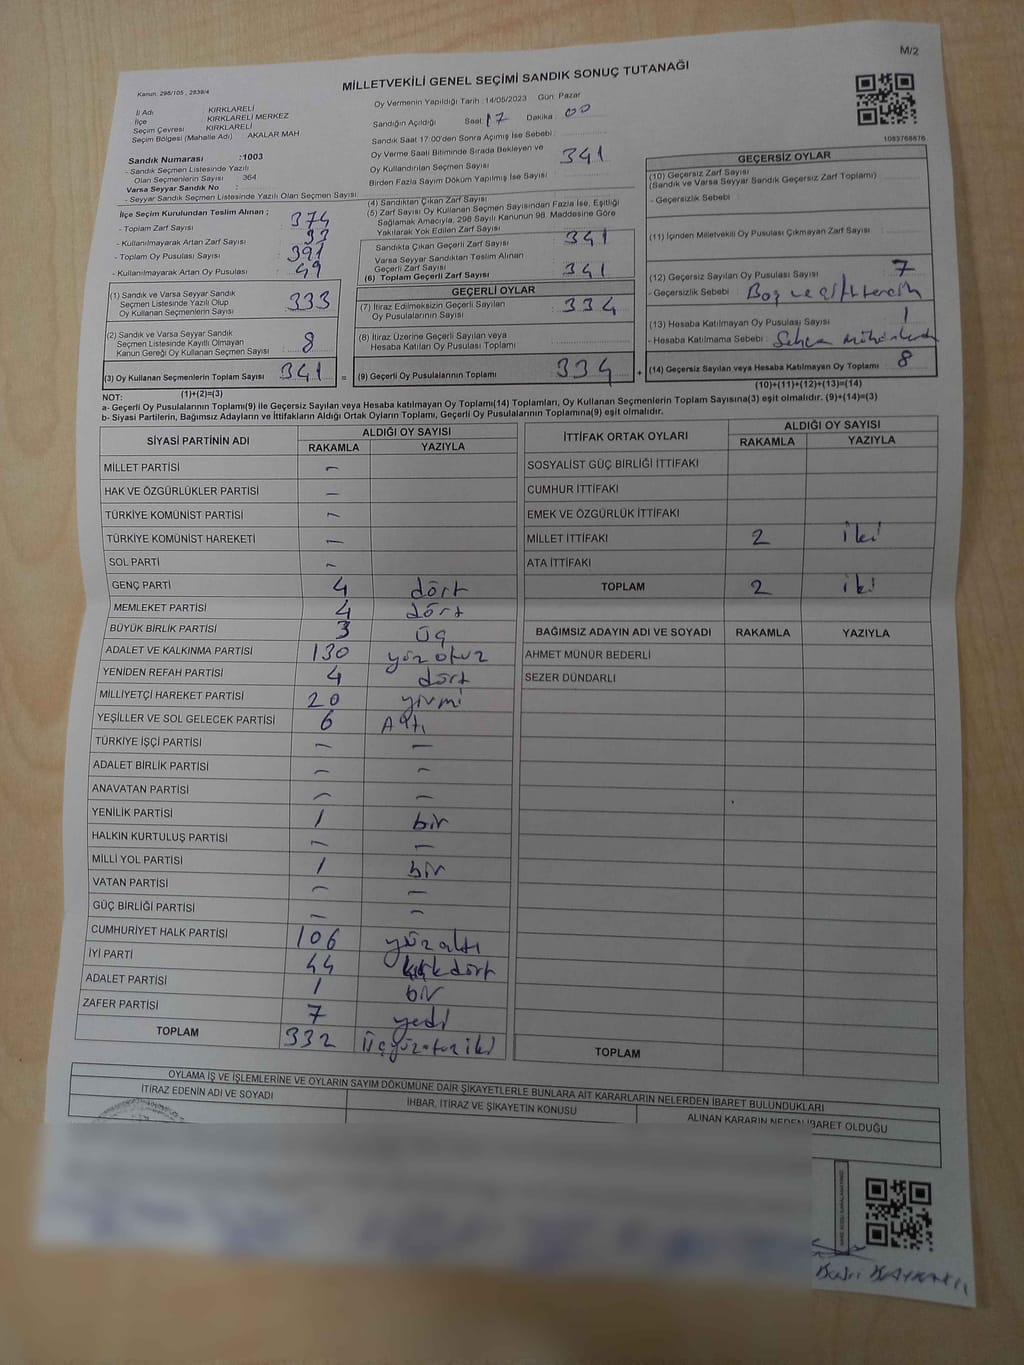 M/2
Kanun. 298/105 , 2839/4
MİLLETVEKİLİ GENEL SEÇİMİ SANDIK SONUÇ TUTANAĞI
İl Adı KIRKLARELİ
İlçe KIRKLARELİ MERKEZ
Seçim Çevresi KIRKLARELİ
Seçim Bölgesi (Mahalle Adı) AKALAR MAH
Oy Vermenin Yapıldığı Tarih : 14/05/2023 Gün: Pazar
Sandığın Açıldığı Saat : 17 Dakika : 00
Sandık Saat 17.00'den Sonra Açılmış İse Sebebi :
Oy Verme Saati Bitiminde Sırada Bekleyen ve
Oy Kullandırılan Seçmen Sayısı 341
Birden Fazla Sayım Döküm Yapılmış İse Sayısı :
1083768876
Sandık Numarası :1003
- Sandık Seçmen Listesinde Yazılı
Olan Seçmenlerin Sayısı 364
Varsa Seyyar Sandık No :
- Seyyar Seçmen Listesinde Yazılı Olan Seçmen Sayısı :
İlçe Seçim Kurulundan Teslim Alınan ;
- Toplam Zarf Sayısı : 374
- Kullanılmayarak Artan Zarf Sayısı : 33
- Toplam Oy Pusulası Sayısı : 391
- Kullanılmayarak Artan Oy Pusulası : 49
(1) Sandık ve Varsa Seyyar Sandık
Seçmen Listesinde Yazılı Olup
Oy Kullanan Seçmenlerin Sayısı : 333
(2) Sandık ve Varsa Seyyar Sandık
Seçmen Listesinde Kayıtlı Olmayan
Kanun Gereği Oy Kullanan Seçmen Sayısı : 8
(3) Oy Kullanan Seçmenlerin Toplam Sayısı : 341 =
(1)+(2)=(3)
(4) Sandıktan Çıkan Zarf Sayısı :
(5) Zarf Sayısı Oy Kullanan Seçmen Sayısından Fazla İse, Eşitliği
Sağlamak Amacıyla, 298 Sayılı Kanunun 98. Maddesine Göre
Yakılarak Yok Edilen Zarf Sayısı :
Sandıkta Çıkan Geçerli Zarf Sayısı : 341
Varsa Seyyar Sandıktan Teslim Alınan
Geçerli Zarf Sayısı :
(6) Toplam Geçerli Zarf Sayısı : 341
GEÇERLİ OYLAR
(7) İtiraz Edilmeksizin Geçerli Sayılan
Oy Pusulalarının Sayısı : 334
(8) İtiraz Üzerine Geçerli Sayılan veya
Hesaba Katılan Oy Pusulası Toplamı :
(9) Geçerli Oy Pusulalarının Toplamı : 334 +
GEÇERSİZ OYLAR
(10) Geçersiz Zarf Sayısı
(Sandık ve Varsa Seyyar Sandık Geçersiz Zarf Toplamı) :
- Geçersizlik Sebebi :
(11) İçinden Milletvekili Oy Pusulası Çıkmayan Zarf Sayısı :
(12) Geçersiz Sayılan Oy Pusulası Sayısı : 7
- Geçersizlik Sebebi : Boş ve
(13) Hesaba Katılmayan Oy Pusulası Sayısı : 1
- Hesaba Katılmama Sebebi :
(14) Geçersiz Sayılan veya Hesaba Katılmayan Oy Toplamı : 8
(10)+(11)+(12)+(13)=(14)
NOT:
a- Geçerli Oy Pusulalarının Toplamı(9) ile Geçersiz Sayılan veya Hesaba Katılmayan Oy Toplamı(14) Toplamları, Oy Kullanan Seçmenlerin Toplam Sayısına(3) eşit olmalıdır. (9)+(14)=(3)
b- Siyasi Partilerin, Bağımsız Adayların ve İttifakların Aldığı Ortak Oyların Toplamı, Geçerli Oy Pusulalarının Toplamına(9) eşit olmalıdır.
SİYASİ PARTİNİN ADI ALDIĞI OY SAYISI
RAKAMLA YAZIYLA
MİLLET PARTİSİ –
HAK VE ÖZGÜRLÜKLER PARTİSİ –
TÜRKİYE KOMÜNİST PARTİSİ –
TÜRKİYE KOMÜNİST HAREKETİ –
SOL PARTİ –
GENÇ PARTİ 4 dört
MEMLEKET PARTİSİ 4 dört
BÜYÜK BİRLİK PARTİSİ 3 üç
ADALET VE KALKINMA PARTİSİ 130 yüz otuz
YENİDEN REFAH PARTİSİ 4 dört
MİLLİYETÇİ HAREKET PARTİSİ 20 yirmi
YEŞİLLER VE SOL GELECEK PARTİSİ 6 Altı
TÜRKİYE İŞÇİ PARTİSİ – –
ADALET BİRLİK PARTİSİ – –
ANAVATAN PARTİSİ – –
YENİLİK PARTİSİ 1 bir
HALKIN KURTULUŞ PARTİSİ – –
MİLLİ YOL PARTİSİ 1 bir
VATAN PARTİSİ – –
GÜÇ BİRLİĞİ PARTİSİ – –
CUMHURİYET HALK PARTİSİ 106 yüz altı
İYİ PARTİ 44 kırkdört
ADALET PARTİSİ 1 bir
ZAFER PARTİSİ 7 yedi
TOPLAM 332 Üçyüzotuziki
İTTİFAK ORTAK OYLARI ALDIĞI OY SAYISI
RAKAMLA YAZIYLA
SOSYALİST GÜÇ BİRLİĞİ İTTİFAKI
CUMHUR İTTİFAKI
EMEK VE ÖZGÜRLÜK İTTİFAKI
MİLLET İTTİFAKI 2 iki
ATA İTTİFAKI
TOPLAM 2 iki
BAĞIMSIZ ADAYIN ADI VE SOYADI RAKAMLA YAZIYLA
AHMET MÜNÜR BEDERLİ
SEZER DÜNDARLI
TOPLAM
OYLAMA İŞ VE İŞLEMLERİNE VE OYLARIN SAYIM DÖKÜMÜNE DAİR ŞİKAYETLERLE BUNLARA AİT KARARLARIN NELERDEN İBARET BULUNDUKLARI
İTİRAZ EDENİN ADI VE SOYADI İHBAR, İTİRAZ VE ŞİKAYETİN KONUSU ALINAN KARARIN NEDEN İBARET OLDUĞU